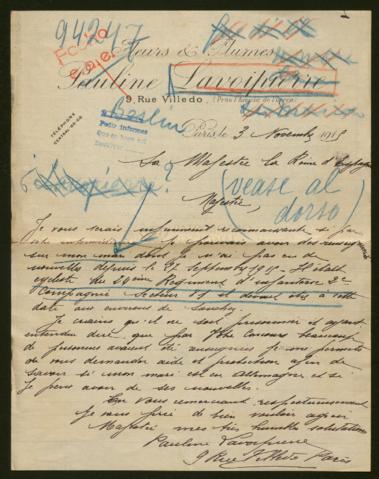 94247
Fecho
Fleurs & Plumes
Pauline Lavoipierre
9, Rue Villedo, (Près l'Avenue de l'Opéra)
TÉLÉPHONE
Berlin
Pedir informes
Paris le 3 Novembre 191
Sa Majesté la Reine d'
Majesté,
(véase al
dorso)
Je vous serais infiniment reconnaissante si par
je pouvais avoir des
sur mon mari dont je n'ai pas eu de
nouvelles depuis le 27 Septembre 1915. Il était
cycliste du 28e Régiment d'infanterie 3e
Compagnie Secteur et devait être à cette
date aux environs de Souchez.
Je crains qu'il ne soit prisonnier et ayant
entendu dire que par Votre Concours beaucoup
de prisonniers avaient été je me permets
de vous demander aide et protection afin de
savoir si mon mari est en Allemagne et si
je peux avoir de ses nouvelles.
En vous remerciant respectueusement
je vous prie de bien vouloir agréer
Majesté mes très humbles salutations
Pauline Lavoipierre
9 Rue Villedo Paris